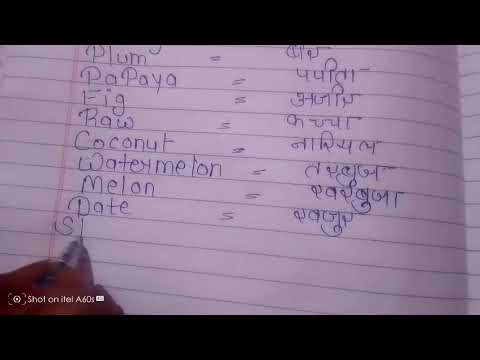 Plum =
Papaya = पपीता
Fig = अंजीर
Raw = कच्चा
Coconut = नारियल
Watermelon = तरबुज
Melon = खरबुजा
Date = खजुर
S
Shot on itel A60s